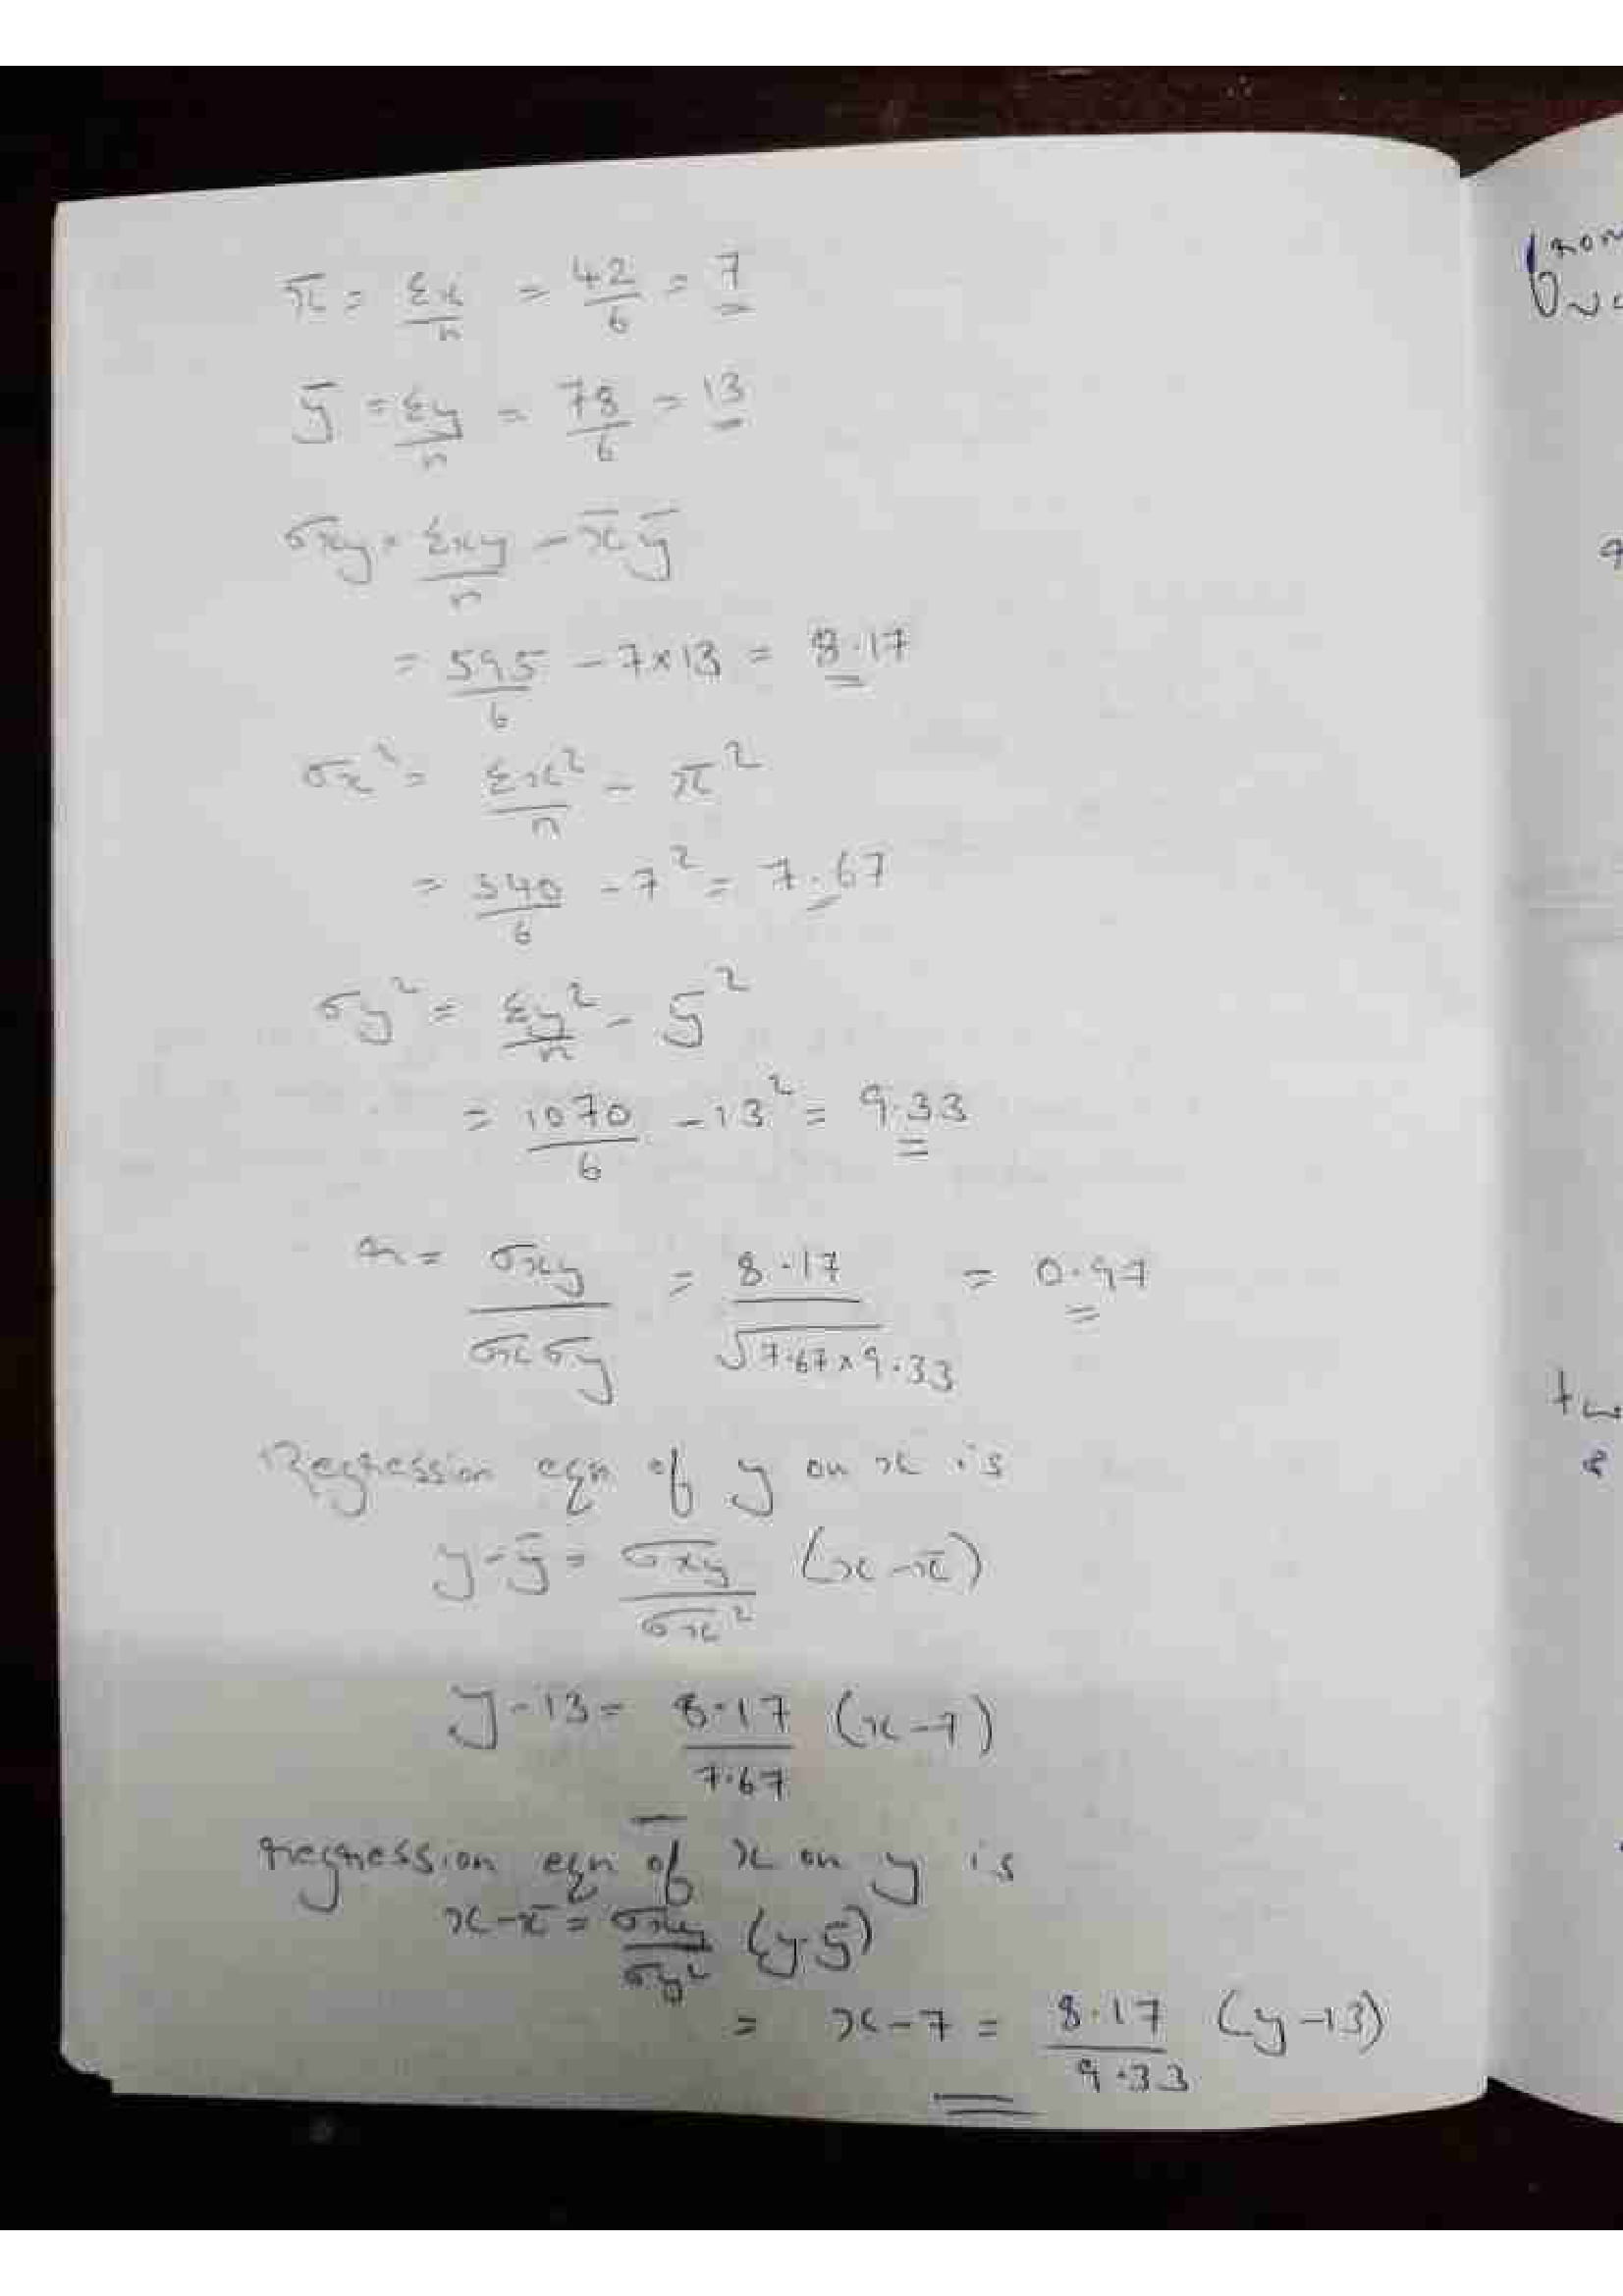 x̄ = Σx/n = 42/6 = 7
ȳ = Σy/n = 78/6 = 13
σxy = Σxy/n - x̄ ȳ
= 595/6 - 7×13 = 8.17
σx² = Σx²/n - x̄²
= 340/6 - 7² = 7.67
σy² = Σy²/n - ȳ²
= 1070/6 - 13² = 9.33
r = σxy/σxσy = 8.17/√7.67×9.33 = 0.97
Regression eqn of y on x is
y-ȳ = σxy/σx² (x-x̄)
y-13 = 8.17/7.67 (x-7)
regression eqn of x on y is
x-x̄ = σxy/σy² (y-ȳ)
= x-7 = 8.17/9.33 (y-13)